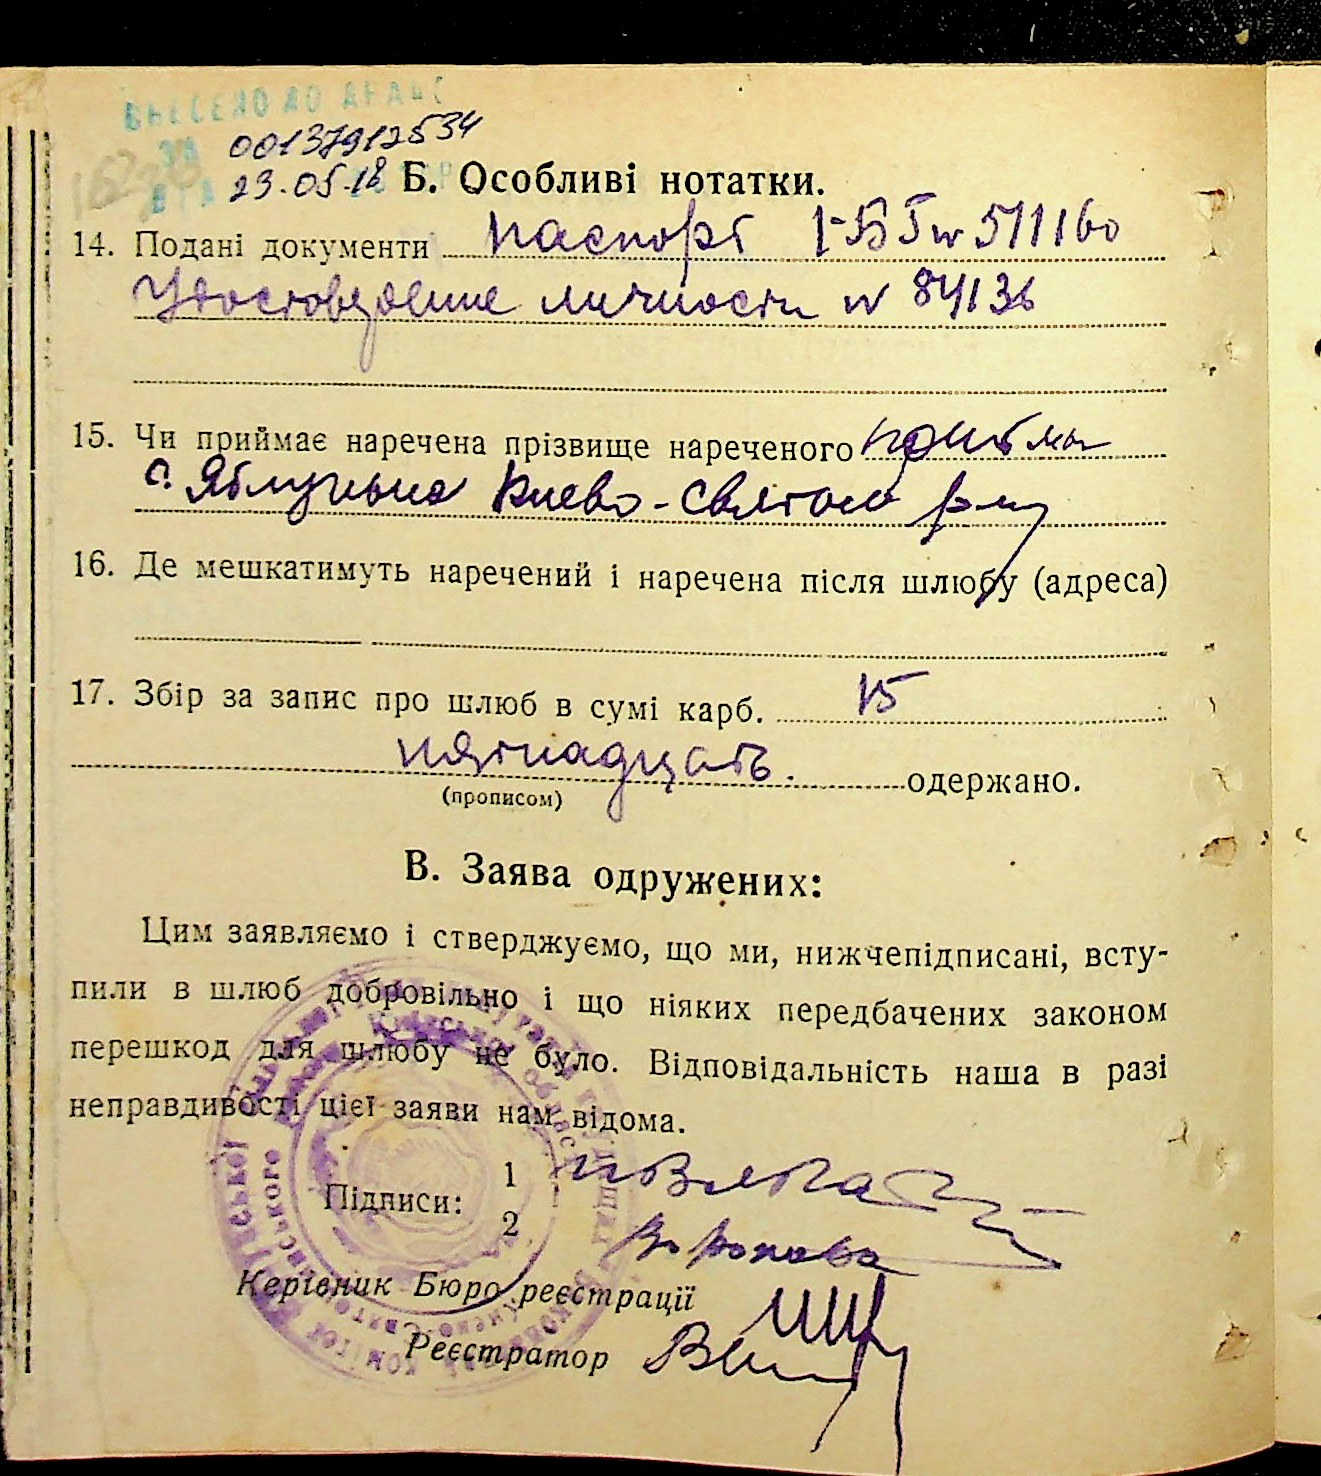 ВНЕСЕНО ДО ДРАЦС
ЗА
00137912534
23.05.18
Б. Особливі нотатки.
14. Подані документи паспорт I-БГ № 511160
Удостоведение личности № 84136
15. Чи приймає наречена прізвище нареченого
с. Яблунька Киево-Святош р-ну
16. Де мешкатимуть наречений і наречена після шлюбу (адреса)
17. Збір за запис про шлюб в сумі карб. 15
пятнадцать. одержано.
(прописом)
В. Заява одружених:
Цим заявляємо і стверджуємо, що ми, нижчепідписані, всту-
пили в шлюб добровільно і що ніяких передбачених законом
перешкод для шлюбу не було. Відповідальність наша в разі
неправдивості цієї заяви нам відома.
Підписи: 1
2 Воронова
Керівник Бюро реєстрації
Реєстратор